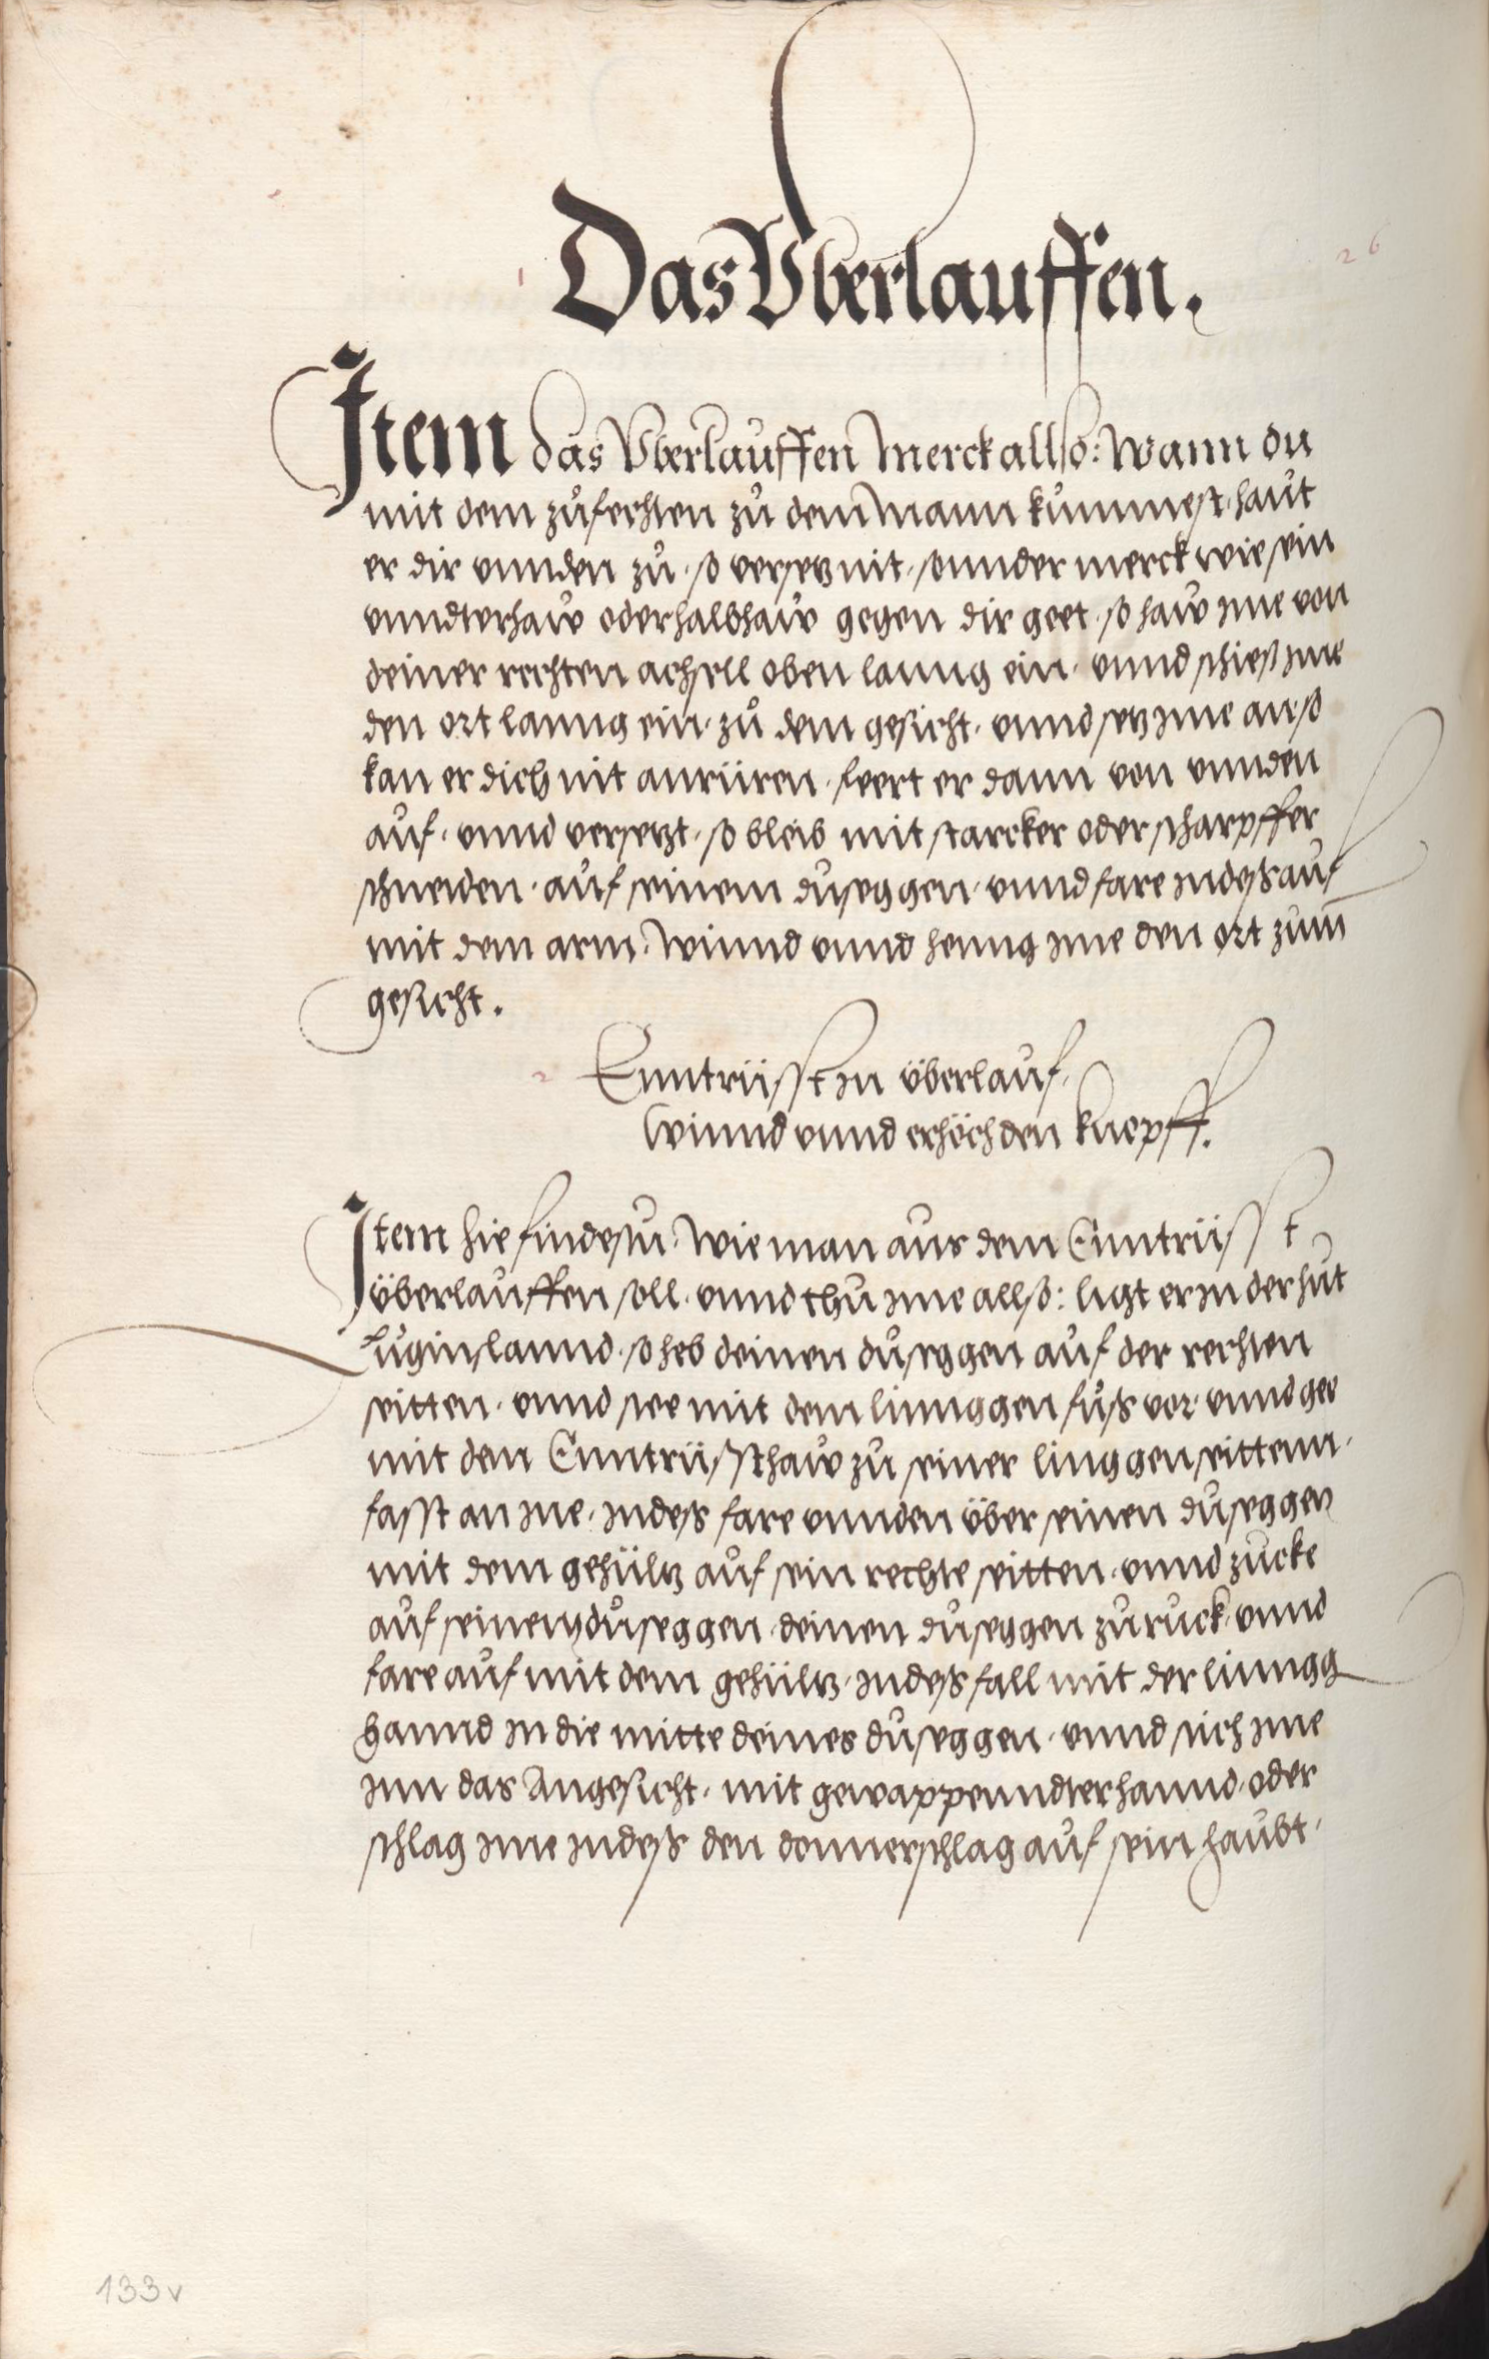 1 Das Vberlauffen.
26
Item das Vberlauffen Merck allso: Wann du
mit dem zůfechten zů dem Mann kummest, haut
er dir vnnden zů, so versetz nit, sonnder merck wie sein
vnndterhaw oder halbhaw gegen dir geet, so haw jme von
deiner rechten achsell oben lanng ein, vnnd schieß jme
den ort lanng ein, zů dem gesicht, vnnd setz jme an, so
kan er dich nit anrüren, feert er dann von vnnden
auf, vnnd versetzt, so bleib mit starcker oder scharpffer
schneiden, auf seinem duseggen, vnnd fare jndeß auf
mit dem arm, Winnd vnnd henng jme den ort zum
gesicht.
2 Enntrüsst jn überlauf,
Winnd vnnd erhöch den knepff.
Item hie findestu, Wie man aus dem Enntrüsst
überlauffen soll, vnnd thu jme allso: ligt er jn der hut
Luginslannd, so heb deinen duseggen auf der rechten
seitten, vnnd stee mit dem linnggen fůß vor, vnnd gee
mit den Enntrüssthaw zu seiner linggen seittenn,
fasst an jne, jndeß fare vnnden über seinen duseggen
mit dem gehültz auf sein rechte seitten, vnnd zucke
auf seinem duseggen deinen duseggen zuruck, vnnd
fare auf mit dem gehültz, jndeß fall mit der linngg
hannd jn die mitte deines duseggen, vnnd stich jme
jnn das Angesicht, mit gewappenndter hannd, oder
schlag jme jndeß den donnerschlag auf sein haubt,
133v